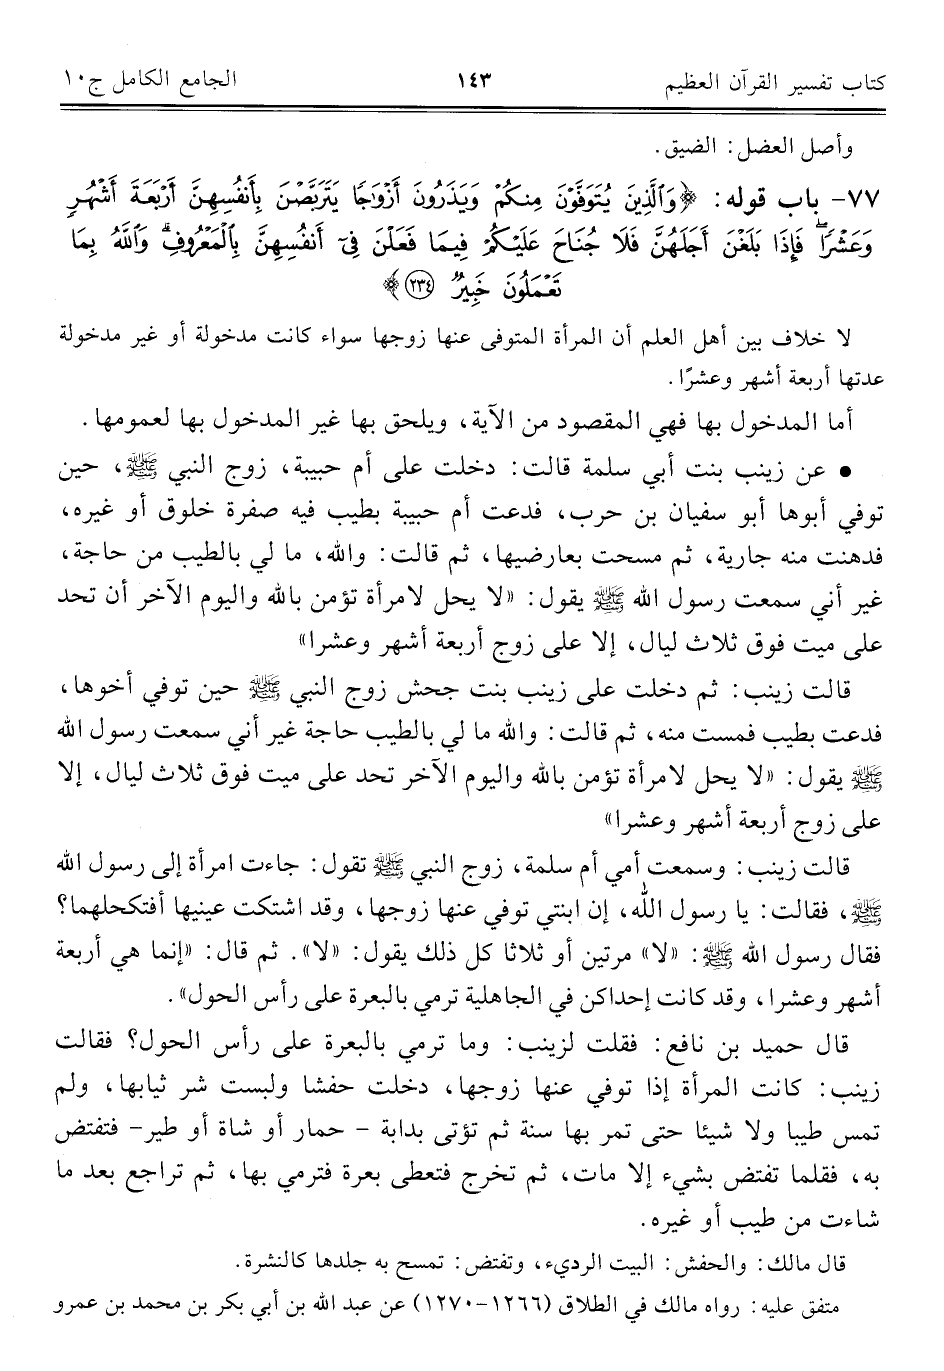 كتاب تفسير القرآن العظيم ١٤٣ الجامع الكامل ج١٠
وأصل العضل: الضيق.
٧٧- باب قوله: ﴿وَٱلَّذِينَ يُتَوَفَّوۡنَ مِنكُمۡ وَيَذَرُونَ أَزۡوَٰجٗا يَتَرَبَّصۡنَ بِأَنفُسِهِنَّ أَرۡبَعَةَ أَشۡهُرٖ
وَعَشۡرٗاۖ فَإِذَا بَلَغۡنَ أَجَلَهُنَّ فَلَا جُنَاحَ عَلَيۡكُمۡ فِيمَا فَعَلۡنَ فِيٓ أَنفُسِهِنَّ بِٱلۡمَعۡرُوفِۗ وَٱللَّهُ بِمَا
تَعۡمَلُونَ خَبِيرٞ ٢٣٤﴾
لا خلاف بين أهل العلم أن المرأة المتوفى عنها زوجها سواء كانت مدخولة أو غير مدخولة
عدتها أربعة أشهر وعشرًا.
أما المدخول بها فهي المقصود من الآية، ويلحق بها غير المدخول بها لعمومها.
• عن زينب بنت أبي سلمة قالت: دخلت على أم حبيبة، زوج النبي ﷺ، حين
توفي أبوها أبو سفيان بن حرب، فدعت أم حبيبة بطيب فيه صفرة خلوق أو غيره،
فدهنت منه جارية، ثم مسحت بعارضيها، ثم قالت: والله، ما لي بالطيب من حاجة،
غير أني سمعت رسول الله ﷺ يقول: «لا يحل لامرأة تؤمن بالله واليوم الآخر أن تحد
على ميت فوق ثلاث ليال، إلا على زوج أربعة أشهر وعشرا»
قالت زينب: ثم دخلت على زينب بنت جحش زوج النبي ﷺ حين توفي أخوها،
فدعت بطيب فمست منه، ثم قالت: والله ما لي بالطيب حاجة غير أني سمعت رسول الله
ﷺ يقول: «لا يحل لامرأة تؤمن بالله واليوم الآخر تحد على ميت فوق ثلاث ليال، إلا
على زوج أربعة أشهر وعشرا»
قالت زينب: وسمعت أمي أم سلمة، زوج النبي ﷺ تقول: جاءت امرأة إلى رسول الله
ﷺ، فقالت: يا رسول الله، إن ابنتي توفي عنها زوجها، وقد اشتكت عينيها أفتكحلهما؟
فقال رسول الله ﷺ: «لا» مرتين أو ثلاثا كل ذلك يقول: «لا». ثم قال: «إنما هي أربعة
أشهر وعشرا، وقد كانت إحداكن في الجاهلية ترمي بالبعرة على رأس الحول».
قال حميد بن نافع: فقلت لزينب: وما ترمي بالبعرة على رأس الحول؟ فقالت
زينب: كانت المرأة إذا توفي عنها زوجها، دخلت حفشا ولبست شر ثيابها، ولم
تمس طيبا ولا شيئا حتى تمر بها سنة ثم تؤتى بدابة - حمار أو شاة أو طير- فتفتض
به، فقلما تفتض بشيء إلا مات، ثم تخرج فتعطى بعرة فترمي بها، ثم تراجع بعد ما
شاءت من طيب أو غيره.
قال مالك: والحفش: البيت الرديء، وتفتض: تمسح به جلدها كالنشرة.
متفق عليه: رواه مالك في الطلاق (١٢٦٦-١٢٧٠) عن عبد الله بن أبي بكر بن محمد بن عمرو